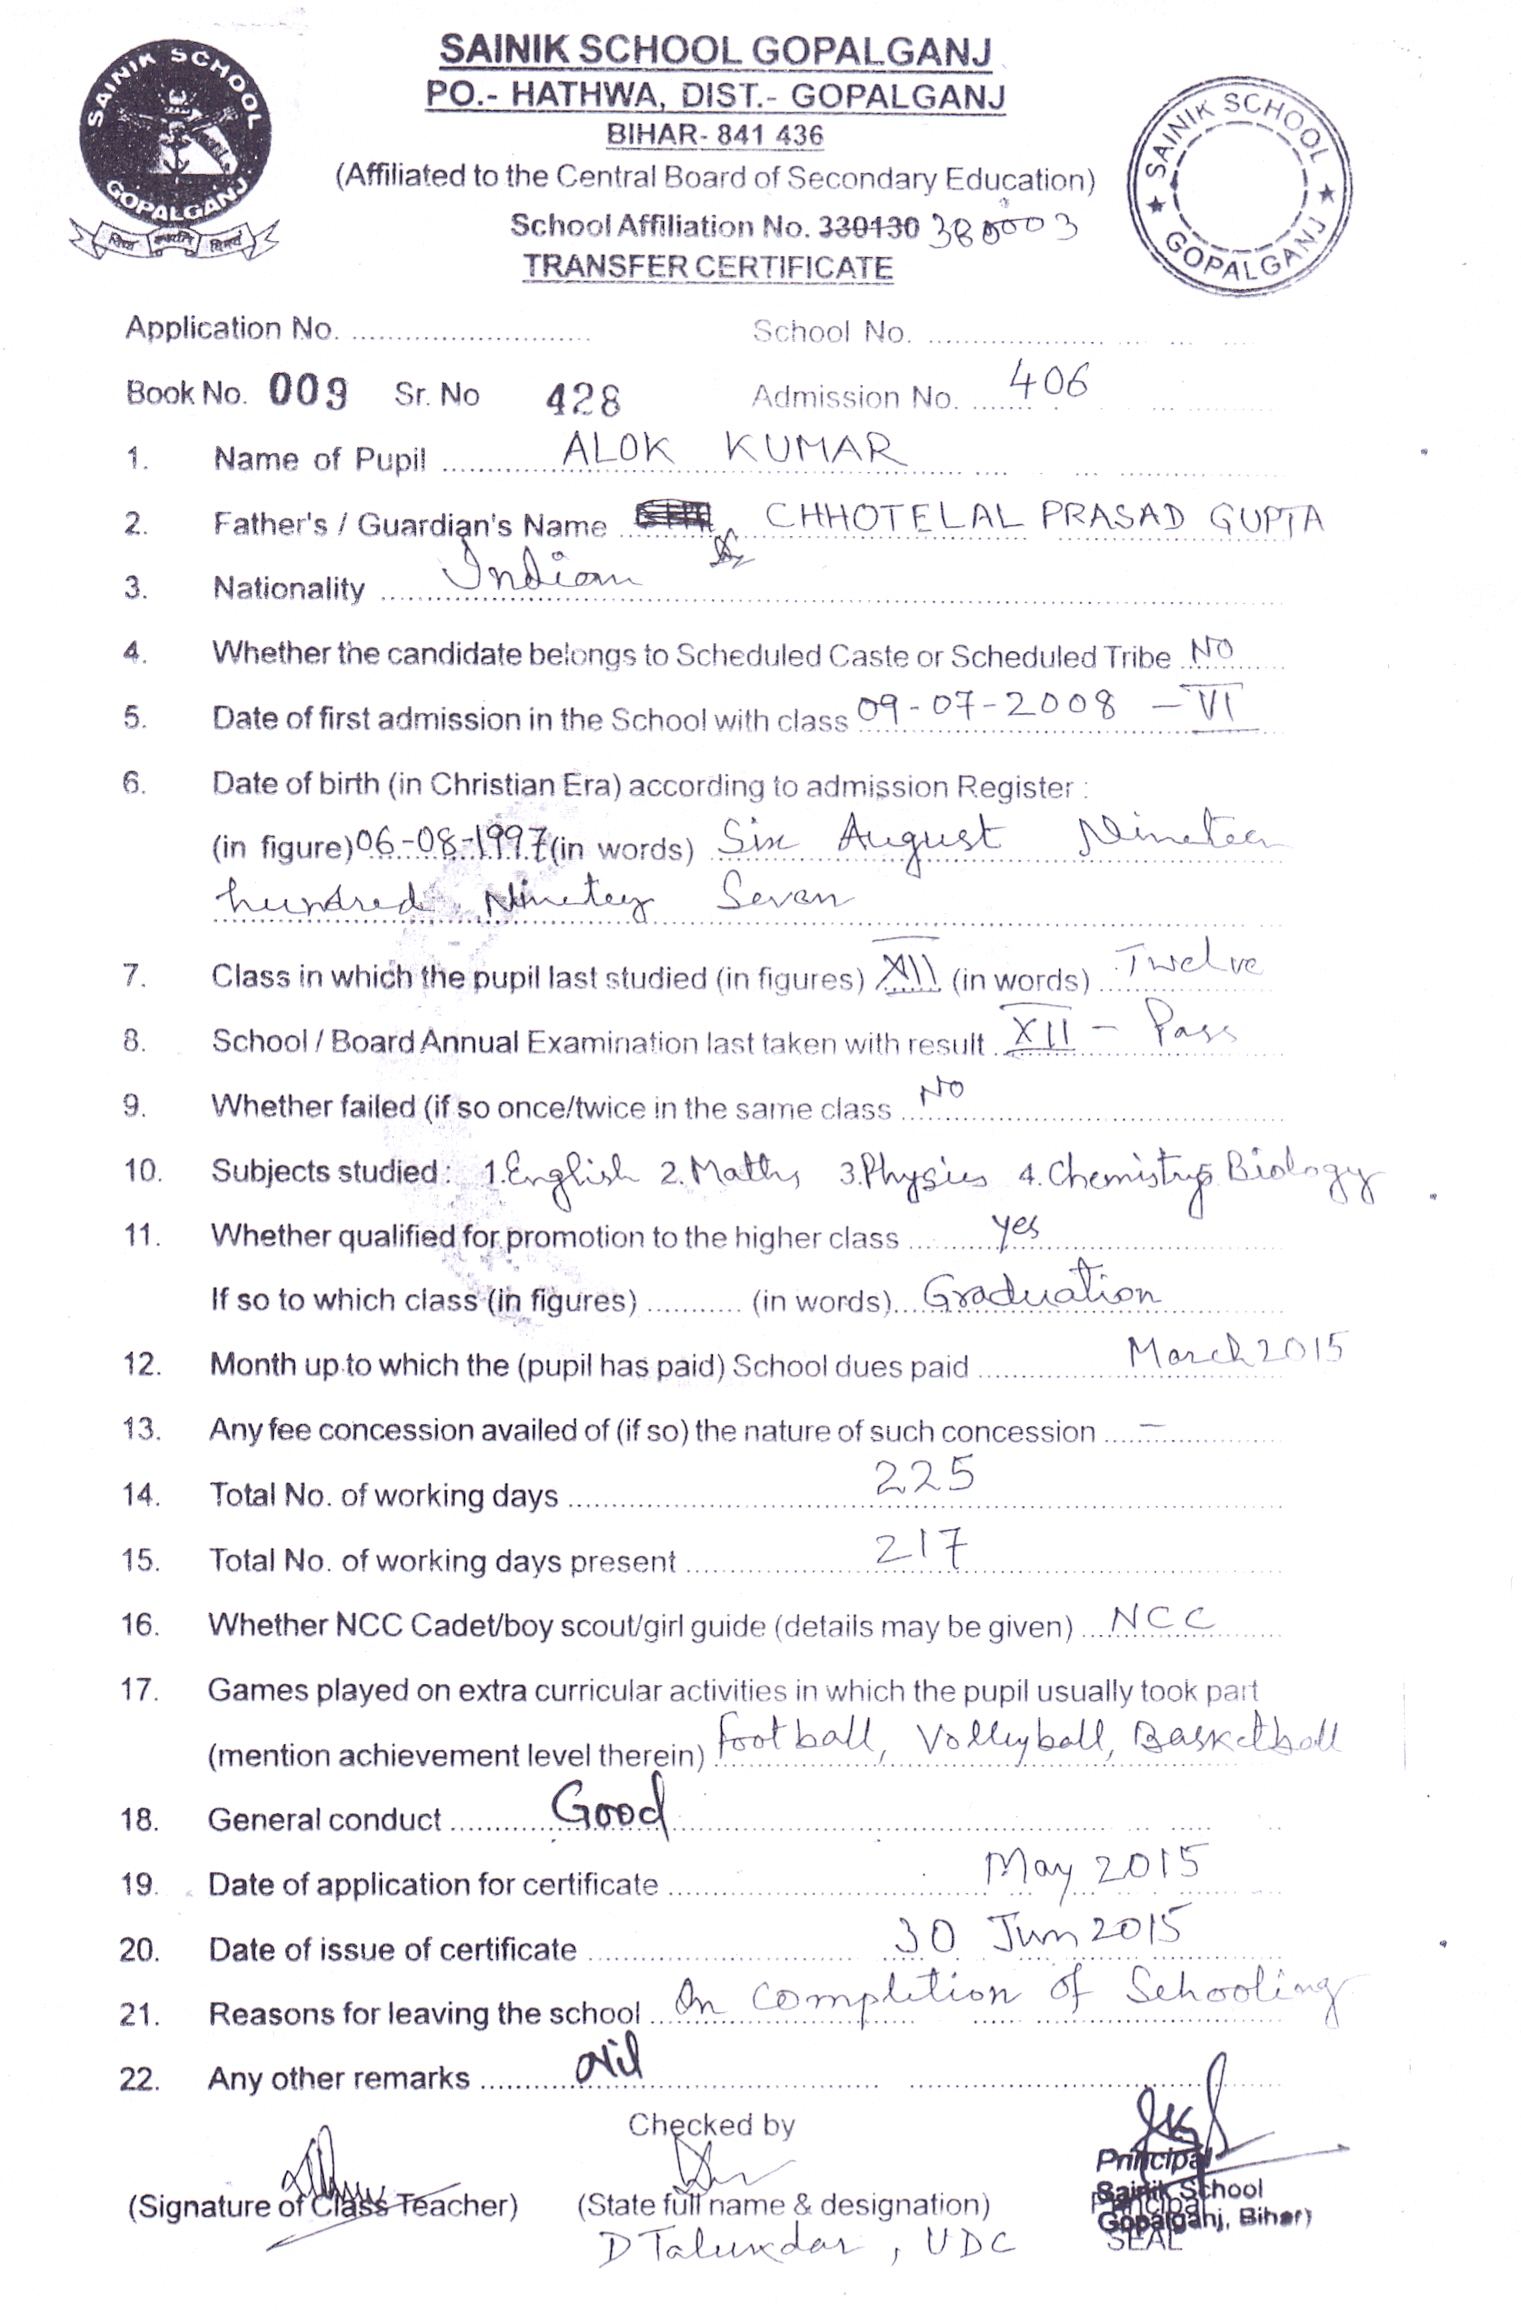 SAINIK SCHOOL GOPALGANJ
SAINIK SCHOOL GOPALGANJ
PO.- HATHWA, DIST.- GOPALGANJ
BIHAR- 841 436
SAINIK SCHOOL ★ GOPALGANJ ★
(Affiliated to the Central Board of Secondary Education)
School Affiliation No. 330130 380003
TRANSFER CERTIFICATE
Application No. School No.
Book No. 009 Sr. No 428 Admission No. 406
1. Name of Pupil ALOK KUMAR
2. Father's / Guardian's Name CHHOTELAL PRASAD GUPTA
3. Nationality Indian
4. Whether the candidate belongs to Scheduled Caste or Scheduled Tribe NO
5. Date of first admission in the School with class 09-07-2008 - VI
6. Date of birth (in Christian Era) according to admission Register :
(in figure) 06-08-1997 (in words) Six August Nineteen
hundred Ninetey Seven
7. Class in which the pupil last studied (in figures) XII (in words) Twelve
8. School / Board Annual Examination last taken with result XII - Pass
9. Whether failed (if so once/twice in the same class NO
10. Subjects studied : 1. English 2. Maths 3. Physics 4. Chemistry 5. Biology
11. Whether qualified for promotion to the higher class yes
If so to which class (in figures) (in words) Graduation
12. Month up to which the (pupil has paid) School dues paid March 2015
13. Any fee concession availed of (if so) the nature of such concession -
14. Total No. of working days 225
15. Total No. of working days present 217
16. Whether NCC Cadet/boy scout/girl guide (details may be given) NCC
17. Games played on extra curricular activities in which the pupil usually took part
(mention achievement level therein) Football, Volleyball, Basketball
18. General conduct Good
19. Date of application for certificate May 2015
20. Date of issue of certificate 30 Jun 2015
21. Reasons for leaving the school On completion of Schooling
22. Any other remarks Nil
Checked by
Principal
Sainik School
Gopalganj, Bihar)
(Signature of Class Teacher) (State full name & designation) Principal
D Talukdar, UDC SEAL